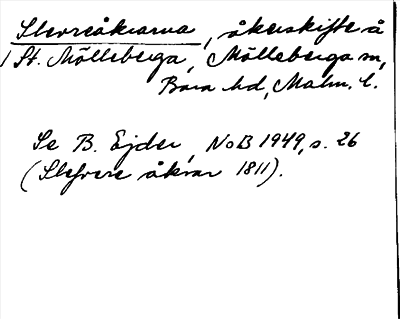 Slevreåkrarna, åkerskifte å
/ St. Mölleberga, Mölleberga sn,
Bara hd, Malm. l.
Se B. Ejder, NoB 1949, s. 26
(Slefvere åkrar 1811).